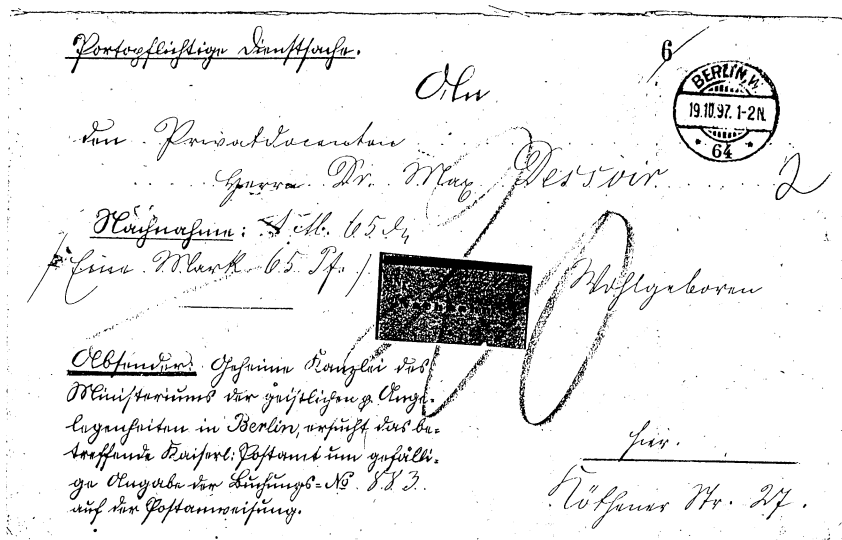 Portopflichtige Dienstsache.
6
An
BERLIN, W.
19.10.97. 1-2N.
64
den Privatdocenten
Herrn Dr. Max Dessoir
2
Nachnahme: 1 M. 65 Pf.
/ Eine Mark 65 Pf. /
Wohlgeboren
Absender: Geheime Kanzlei des
Ministeriums der geistlichen p. Ange-
legenheiten in Berlin, ersucht das be-
treffende Kaiserl: Postamt um gefälli-
ge Angabe der Buchungs=No 883.
auf der Postanweisung.
hier.
Köthener Str. 27.